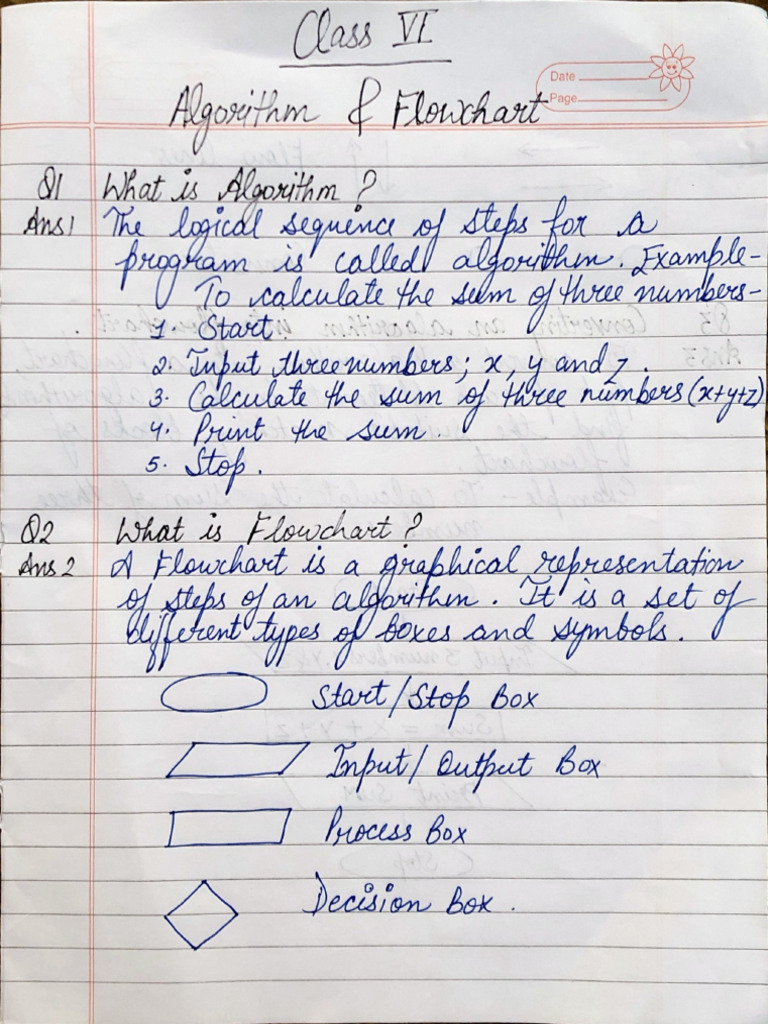 Class VI
Date
Page
Algorithm & Flowchart
Q1 What is Algorithm ?
Ans1 The logical sequence of steps for a
program is called algorithm. Example-
To calculate the sum of three numbers-
1. Start
2. Input three numbers; x, y and z.
3. Calculate the sum of three numbers (x+y+z)
4. Print the sum.
5. Stop.
Q2 What is Flowchart ?
Ans 2 A Flowchart is a graphical representation
of steps of an algorithm. It is a set of
different types of boxes and symbols.
Start/Stop Box
Input/Output Box
Process Box
Decision Box.